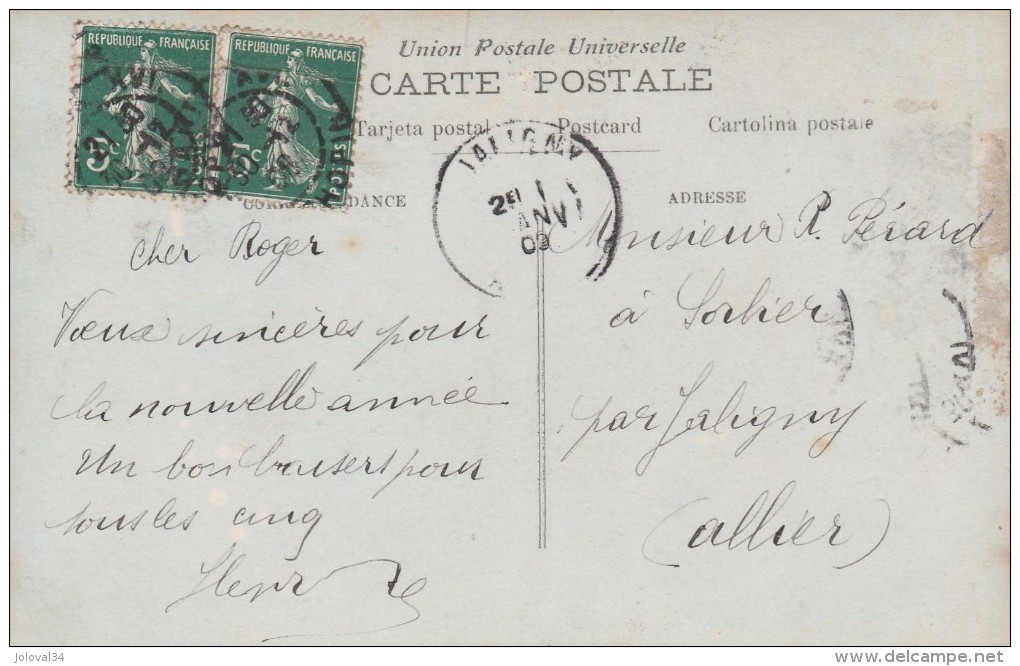 RÉPUBLIQUE FRANÇAISE
RÉPUBLIQUE FRANÇAISE
5c
5c
POSTES
POSTES
Union Postale Universelle
CARTE POSTALE
Tarjeta postal Postcard Cartolina postale
DANCE
ADRESSE
JALIGNY
2E 1
JANV
09
Cher Roger
Vœux sincères pour
la nouvelle année
Un bon baiser pour
tous les cinq
Monsieur R. Pérard
à Sorbier
par Jaligny
(allier)
joloval34
www.delcampe.net